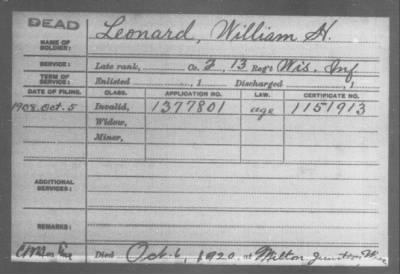 DEAD
NAME OF SOLDIER: Leonard, William H.
SERVICE: Late rank, Co. I, 13 Reg't Wis. Inf
TERM OF SERVICE: Enlisted , 1 Discharged , 1
DATE OF FILING. CLASS. APPLICATION NO. LAW. CERTIFICATE NO.
1908 Oct. 5 Invalid, 1377801 age 1151913
Widow,
Minor,
ADDITIONAL SERVICES:
REMARKS:
Died Oct 6, 1920, at Milton Junction, Wis